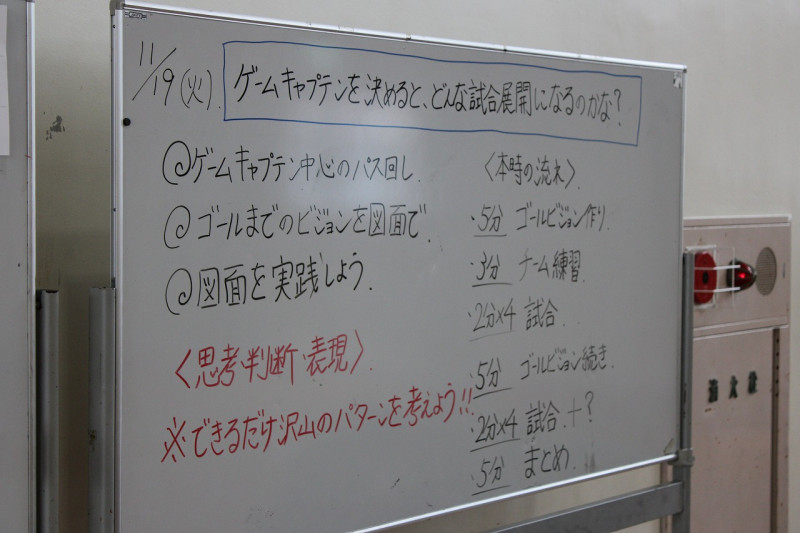 11/19(火) ゲームキャプテンを決めると、どんな試合展開になるのかな?
@ゲームキャプテン中心のパス回し.
@ゴールまでのビジョンを図面で.
@図面を実践しよう.
〈思考・判断・表現〉
※できるだけ沢山のパターンを考えよう!!
〈本時の流れ〉
・5分 ゴールビジョン作り.
・3分 チーム練習
・2分×4 試合.
・5分 ゴールビジョン続き.
・2分×4 試合.+?
・5分 まとめ.
消火栓